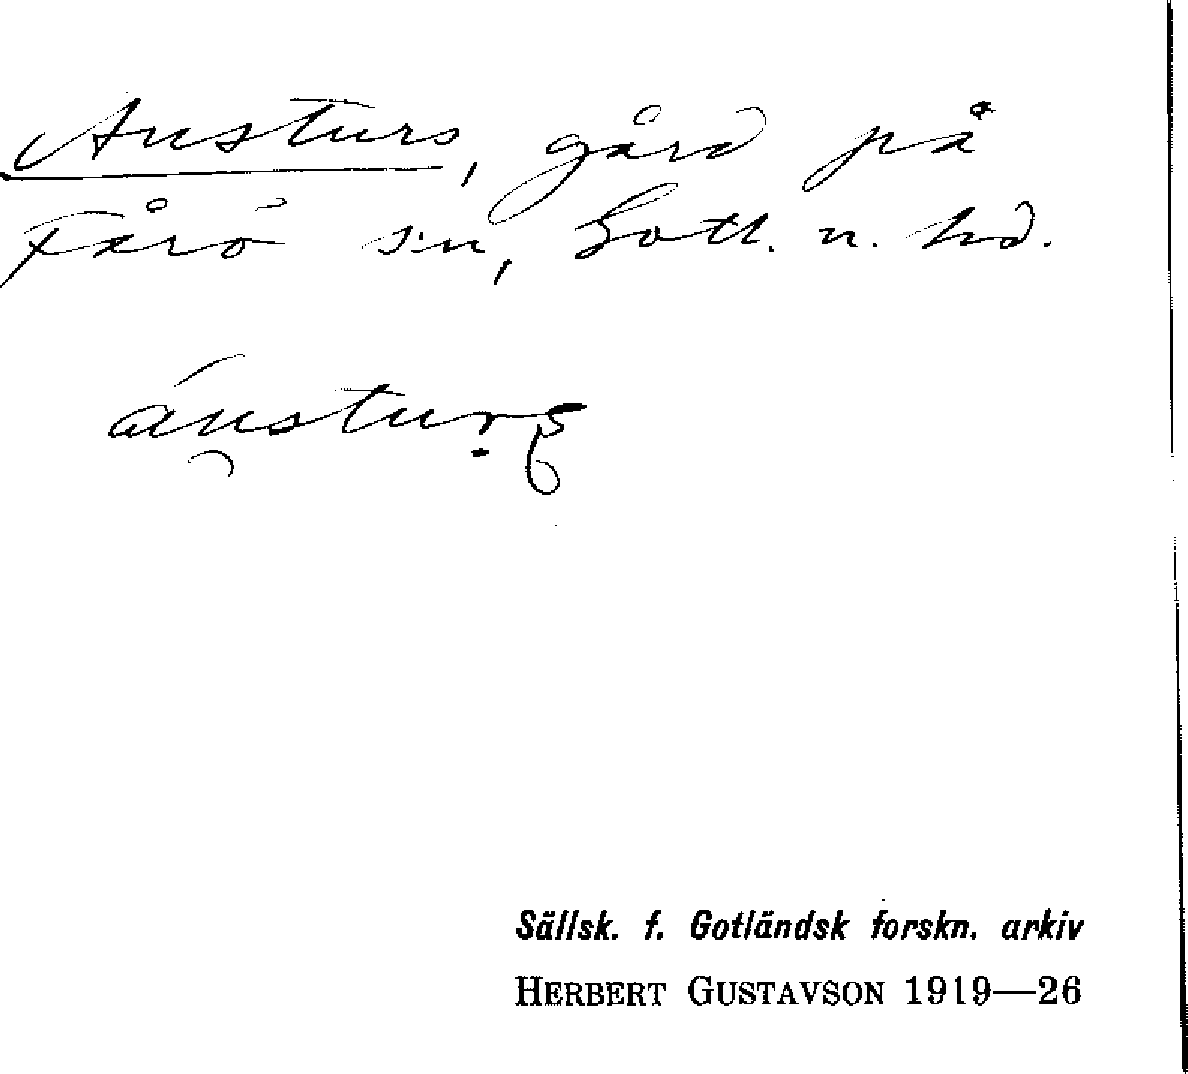 Austurs, gård på
Fårö s:n, Gotl. n. hd.
Sällsk. f. Gotländsk forskn. arkiv
HERBERT GUSTAVSON 1919—26